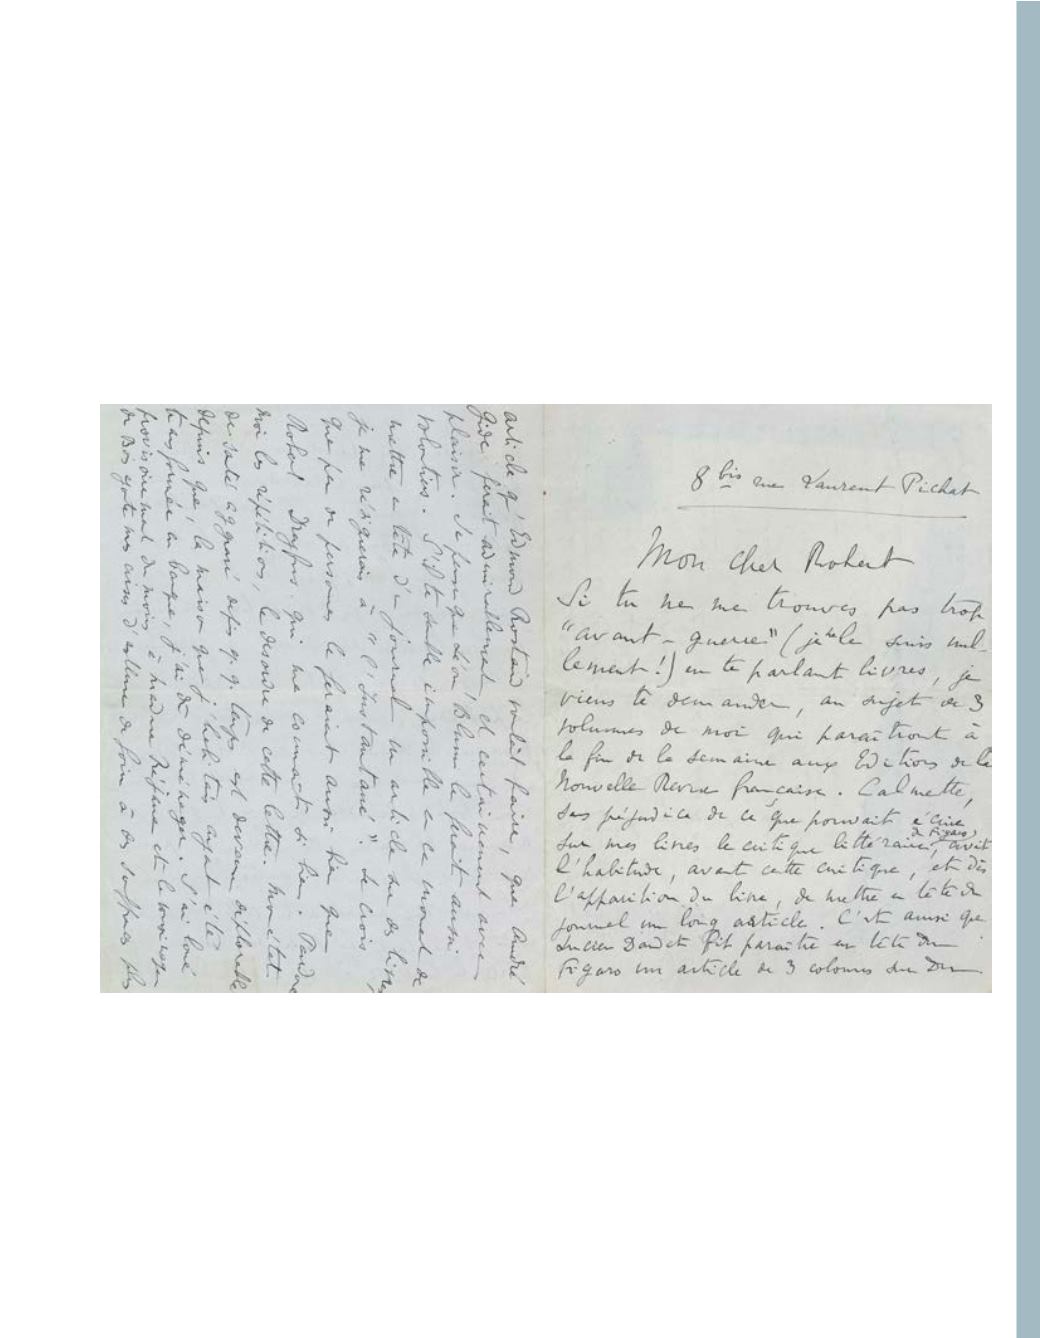 8 bis rue Laurent Pichat
Mon cher Robert
Si tu ne me trouves pas trop
"avant-guerre" (je ne le suis nul-
lement!) en te parlant livres, je
viens te demander, au sujet de 3
volumes de moi qui paraîtront à
la fin de la semaine aux Editions de la
Nouvelle Revue française. Calmette,
sans préjudice de ce que pouvait écrire
sur mes livres le critique littéraire du Figaro, avait
l'habitude, avant cette critique, et dès
l'apparition du livre, de mettre en tête du
journal un long article. C'est ainsi que
Lucien Daudet fit paraître en tête du
Figaro un article de 3 colonnes sur Du
article qu'Edmond Rostand voulait faire, que André
Gide ferait admirablement et certainement avec
plaisir. Je pense que Léon Blum le ferait aussi
volontiers. S'il te semble impossible en ce moment de
mettre en tête d'un journal un article sur des livres
je me résignerais à "l'Instantané". Je crois
que peu de personnes le feraient aussi bien que
Robert Dreyfus qui me connaît si bien. Pardonne
moi les répétitions, le désordre de cette lettre. Mon état
de santé aggravé depuis q.q. temps est devenu déplorable
depuis que, la maison que j'habitais ayant été
transformée en banque, j'ai dû déménager. J'ai loué
provisoirement du moins à madame Réjane et le voisinage
du Bois ajoute mes crises d'asthme de foin à des souffrances plus